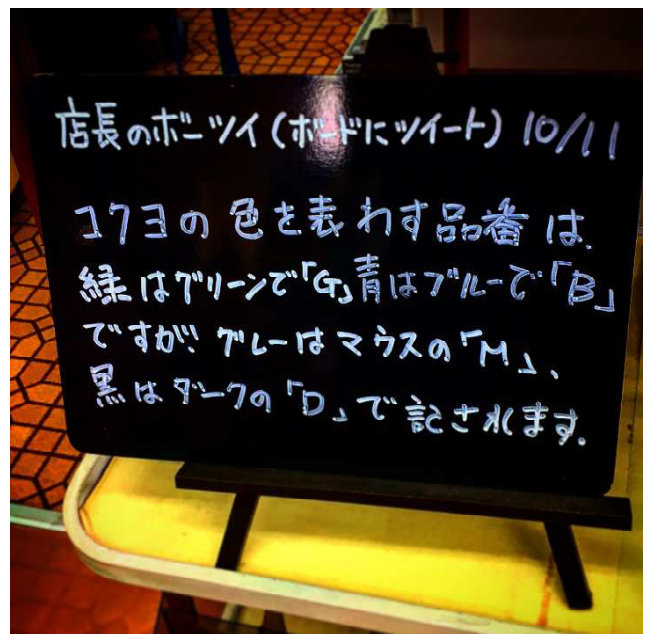 店長のボーツイ(ボードにツイート) 10/11
コクヨの色を表わす品番は、
緑はグリーンで「G」青はブルーで「B」
ですが、グレーはマウスの「M」、
黒はダークの「D」で記されます。